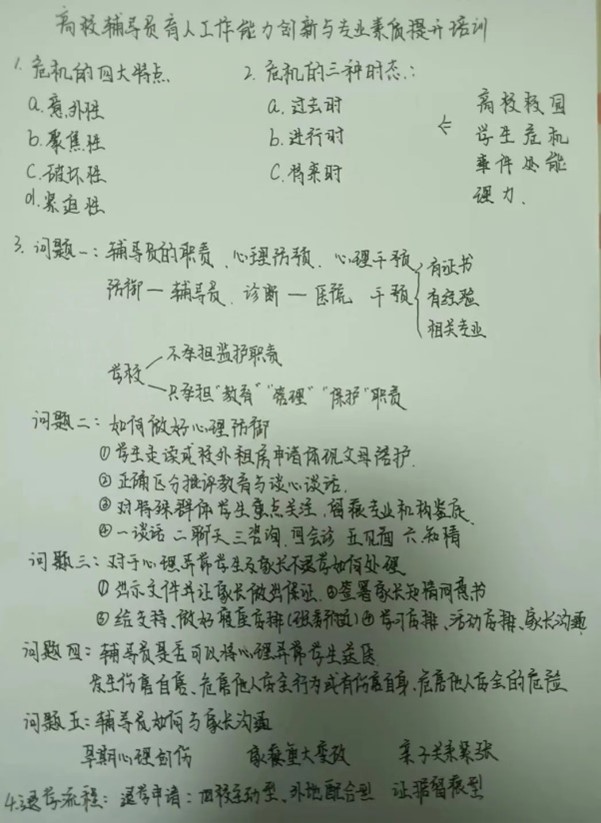 高校辅导员育人工作能力创新与专业素质提升培训
1. 危机的四大特点
a. 意外性
b. 聚焦性
c. 破坏性
d. 紧迫性
2. 危机的三种时态:
a. 过去时
b. 进行时
c. 将来时
← 高校校园
学生危机
事件处能
理力.
3. 问题一: 辅导员的职责、心理防预、心理干预
防御—辅导员、诊断—医院 干预
有证书
有经验
相关专业
学校
不承担监护职责
只承担"教育""管理""保护"职责
问题二: 如何做好心理防御
① 学生走读或校外租房申请体现父母陪护.
② 正确区分批评教育与谈心谈话.
③ 对特殊群体学生重点关注、留痕专业机构鉴定.
④ 一谈话 二聊天 三咨询 四会诊 五见面 六知情
问题三: 对于心理异常学生及家长不退学如何处理
① 出示文件并让家长做出保证. ②签署家长知情同意书
③ 给支持、做好寝室安排 ④学习安排、活动安排、家长沟通
问题四: 辅导员是否可以将心理异常学生送医
发生伤害自身、危害他人安全行为或有伤害自身、危害他人安全的危险
问题五: 辅导员如何与家长沟通
早期心理创伤 家庭重大变故 亲子关系紧张
4.退学流程: 退学申请: 回校主动型、外地配合型 证据留痕型